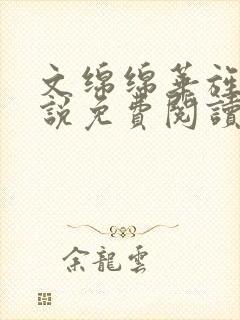 文綿綿華旌
說免費閱讀
余龍雲